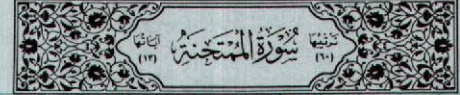 ترتيبها (٦٠) سُورَةُ المُمْتَحنَةِ آياتها (١٣)